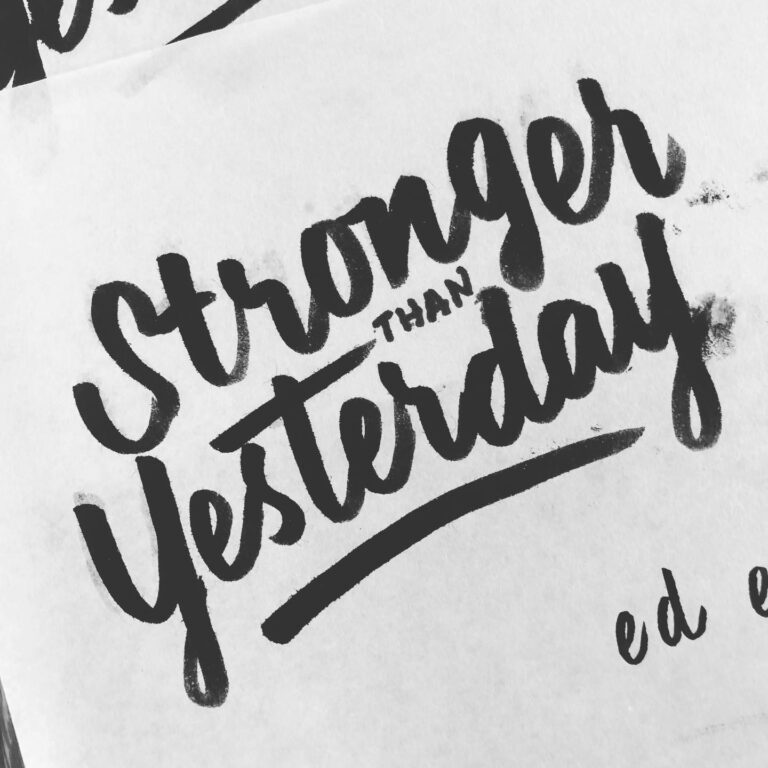 Stronger
THAN
Yesterday
ed e